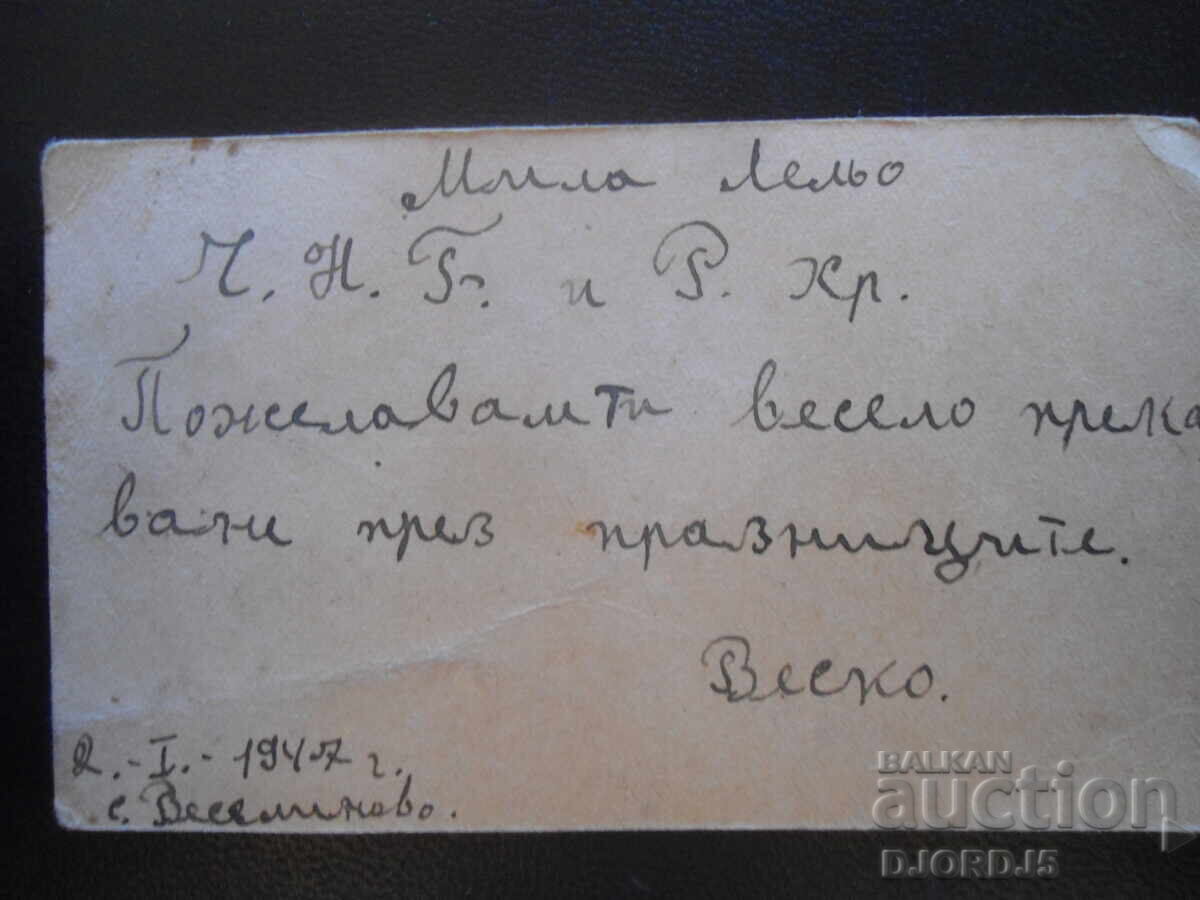 Мила Лельо
Ч. Н. Г. и Р. Хр.
Пожелавамти весело прека
ване през празниците.
Веско.
2.-I.-1947 г.
с. Веселиново.
BALKAN
auction
DJORDJ5